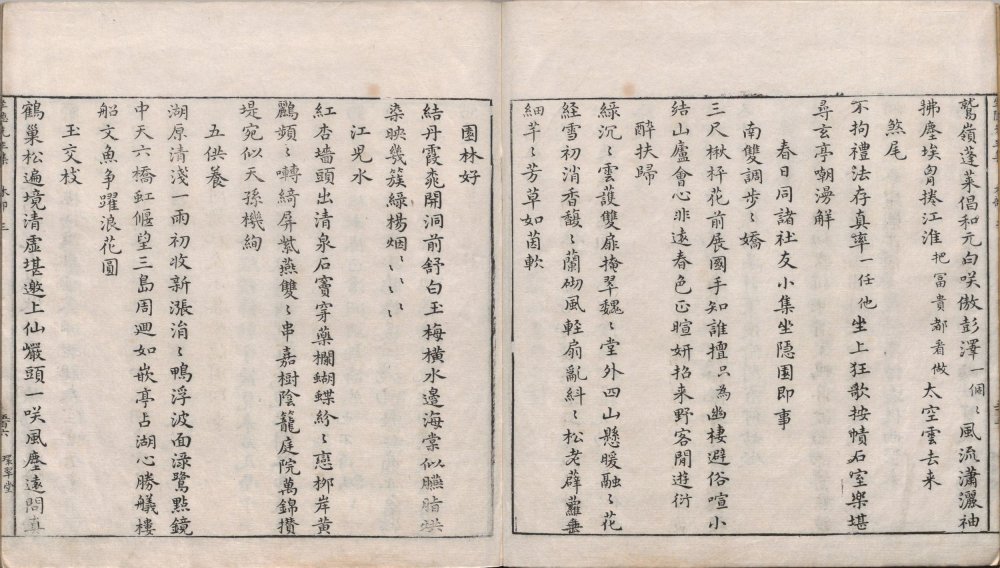 鷲嶺蓬萊倡和元白咲傲彭澤一個〻風流瀟灑袖
拂塵埃胷捲江淮把冨貴都看做太空雲去来
煞尾
不拘禮法存真率一任他坐上狂歌按幘石室樂堪
尋玄亭嘲漫解
春日同諸社友小集坐隱園即事
南雙調步〻嬌
三尺楸枰花前展國手知誰擅只為幽棲避俗喧小
結山廬會心非遠春色正暄妍招来野客閒遊衍
醉扶歸
綠沉〻雲護雙扉掩翠巍〻堂外四山懸暖融〻花
經雪初消香馥〻蘭砌風輕扇亂紏〻松老薜蘿垂
細芊〻芳草如茵軟
園林好
結丹霞桃開洞前舒白玉梅橫水邊海棠似臙脂
染映幾簇綠楊烟〻〻〻
江兒水
紅杏墻頭出清泉石竇穿藥欄蝴蝶紛〻戀栁岸黃
鸝頻〻囀綺屏紫燕雙〻串嘉樹陰籠庭院萬錦攢
堤宛似天孫機絢
五供養
湖原清淺一雨初收新漲涓〻鴨浮波面淥鷺點鏡
中天六橋虹偃望三島周迴如嵌亭占湖心勝艤樓
船文魚争躍浪花圓
玉交枝
鶴巢松遍境清虛堪邀上仙巖頭一咲風塵遠問真
環翠堂